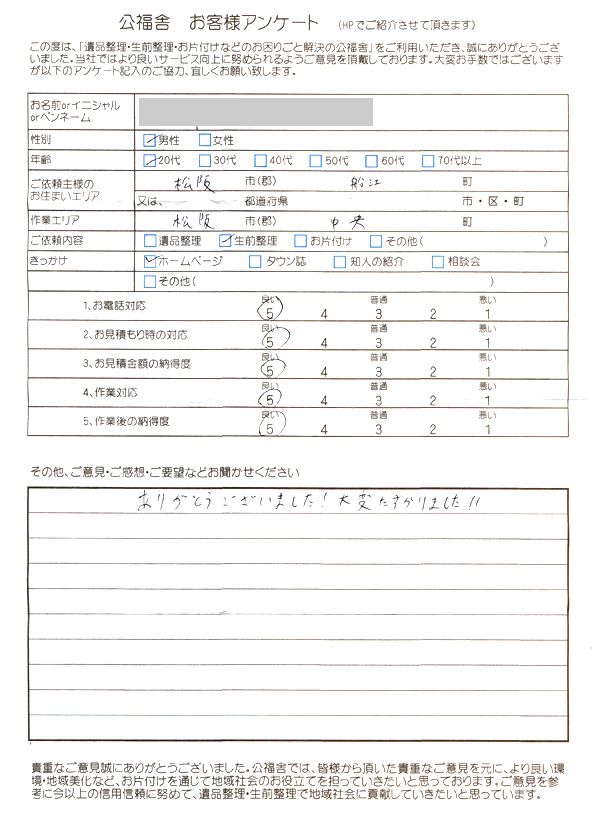 公福舎 お客様アンケート (HPでご紹介させて頂きます)
この度は、「遺品整理・生前整理・お片付けなどのお困りごと解決の公福舎」をご利用いただき、誠にありがとうござ
いました。当社ではより良いサービス向上に努められるようご意見を頂戴しております。大変お手数ではございます
が以下のアンケート記入のご協力、宜しくお願い致します。
お名前orイニシャル
orペンネーム
性別 男性 女性
年齢 20代 30代 40代 50代 60代 70代以上
ご依頼主様の
お住まいエリア
松阪 市(郡) 船江 町
又は、 都道府県 市・区・町
作業エリア 松阪 市(郡) 中央 町
ご依頼内容 遺品整理 生前整理 お片付け その他( )
きっかけ ホームページ タウン誌 知人の紹介 相談会
その他( )
良い 普通 悪い
1、お電話対応 5 4 3 2 1
良い 普通 悪い
2、お見積もり時の対応 5 4 3 2 1
良い 普通 悪い
3、お見積金額の納得度 5 4 3 2 1
良い 普通 悪い
4、作業対応 5 4 3 2 1
良い 普通 悪い
5、作業後の納得度 5 4 3 2 1
その他、ご意見・ご感想・ご要望などお聞かせください
ありがとうございました!大変たすかりました!!
貴重なご意見誠にありがとうございました。公福舎では、皆様から頂いた貴重なご意見を元に、より良い環
境・地域美化など、お片付けを通じて地域社会のお役立てを担っていきたいと思っております。ご意見を参
考に今以上の信用信頼に努めて、遺品整理・生前整理で地域社会に貢献していきたいと思っています。